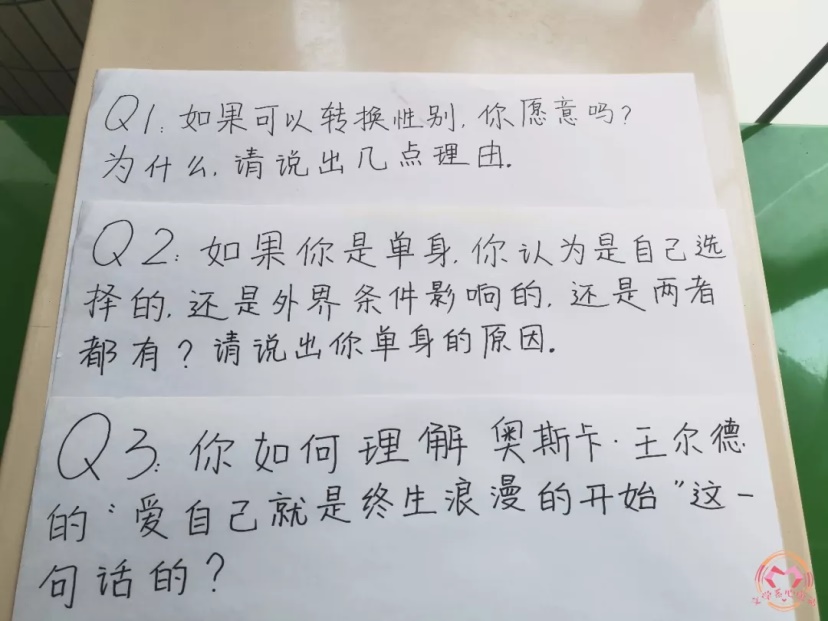 Q1:如果可以转换性别,你愿意吗?
为什么,请说出几点理由.
Q2:如果你是单身,你认为是自己选
择的,还是外界条件影响的,还是两者
都有?请说出你单身的原因.
Q3:你如何理解奥斯卡·王尔德
的“爱自己就是终生浪漫的开始”这一
句话的?